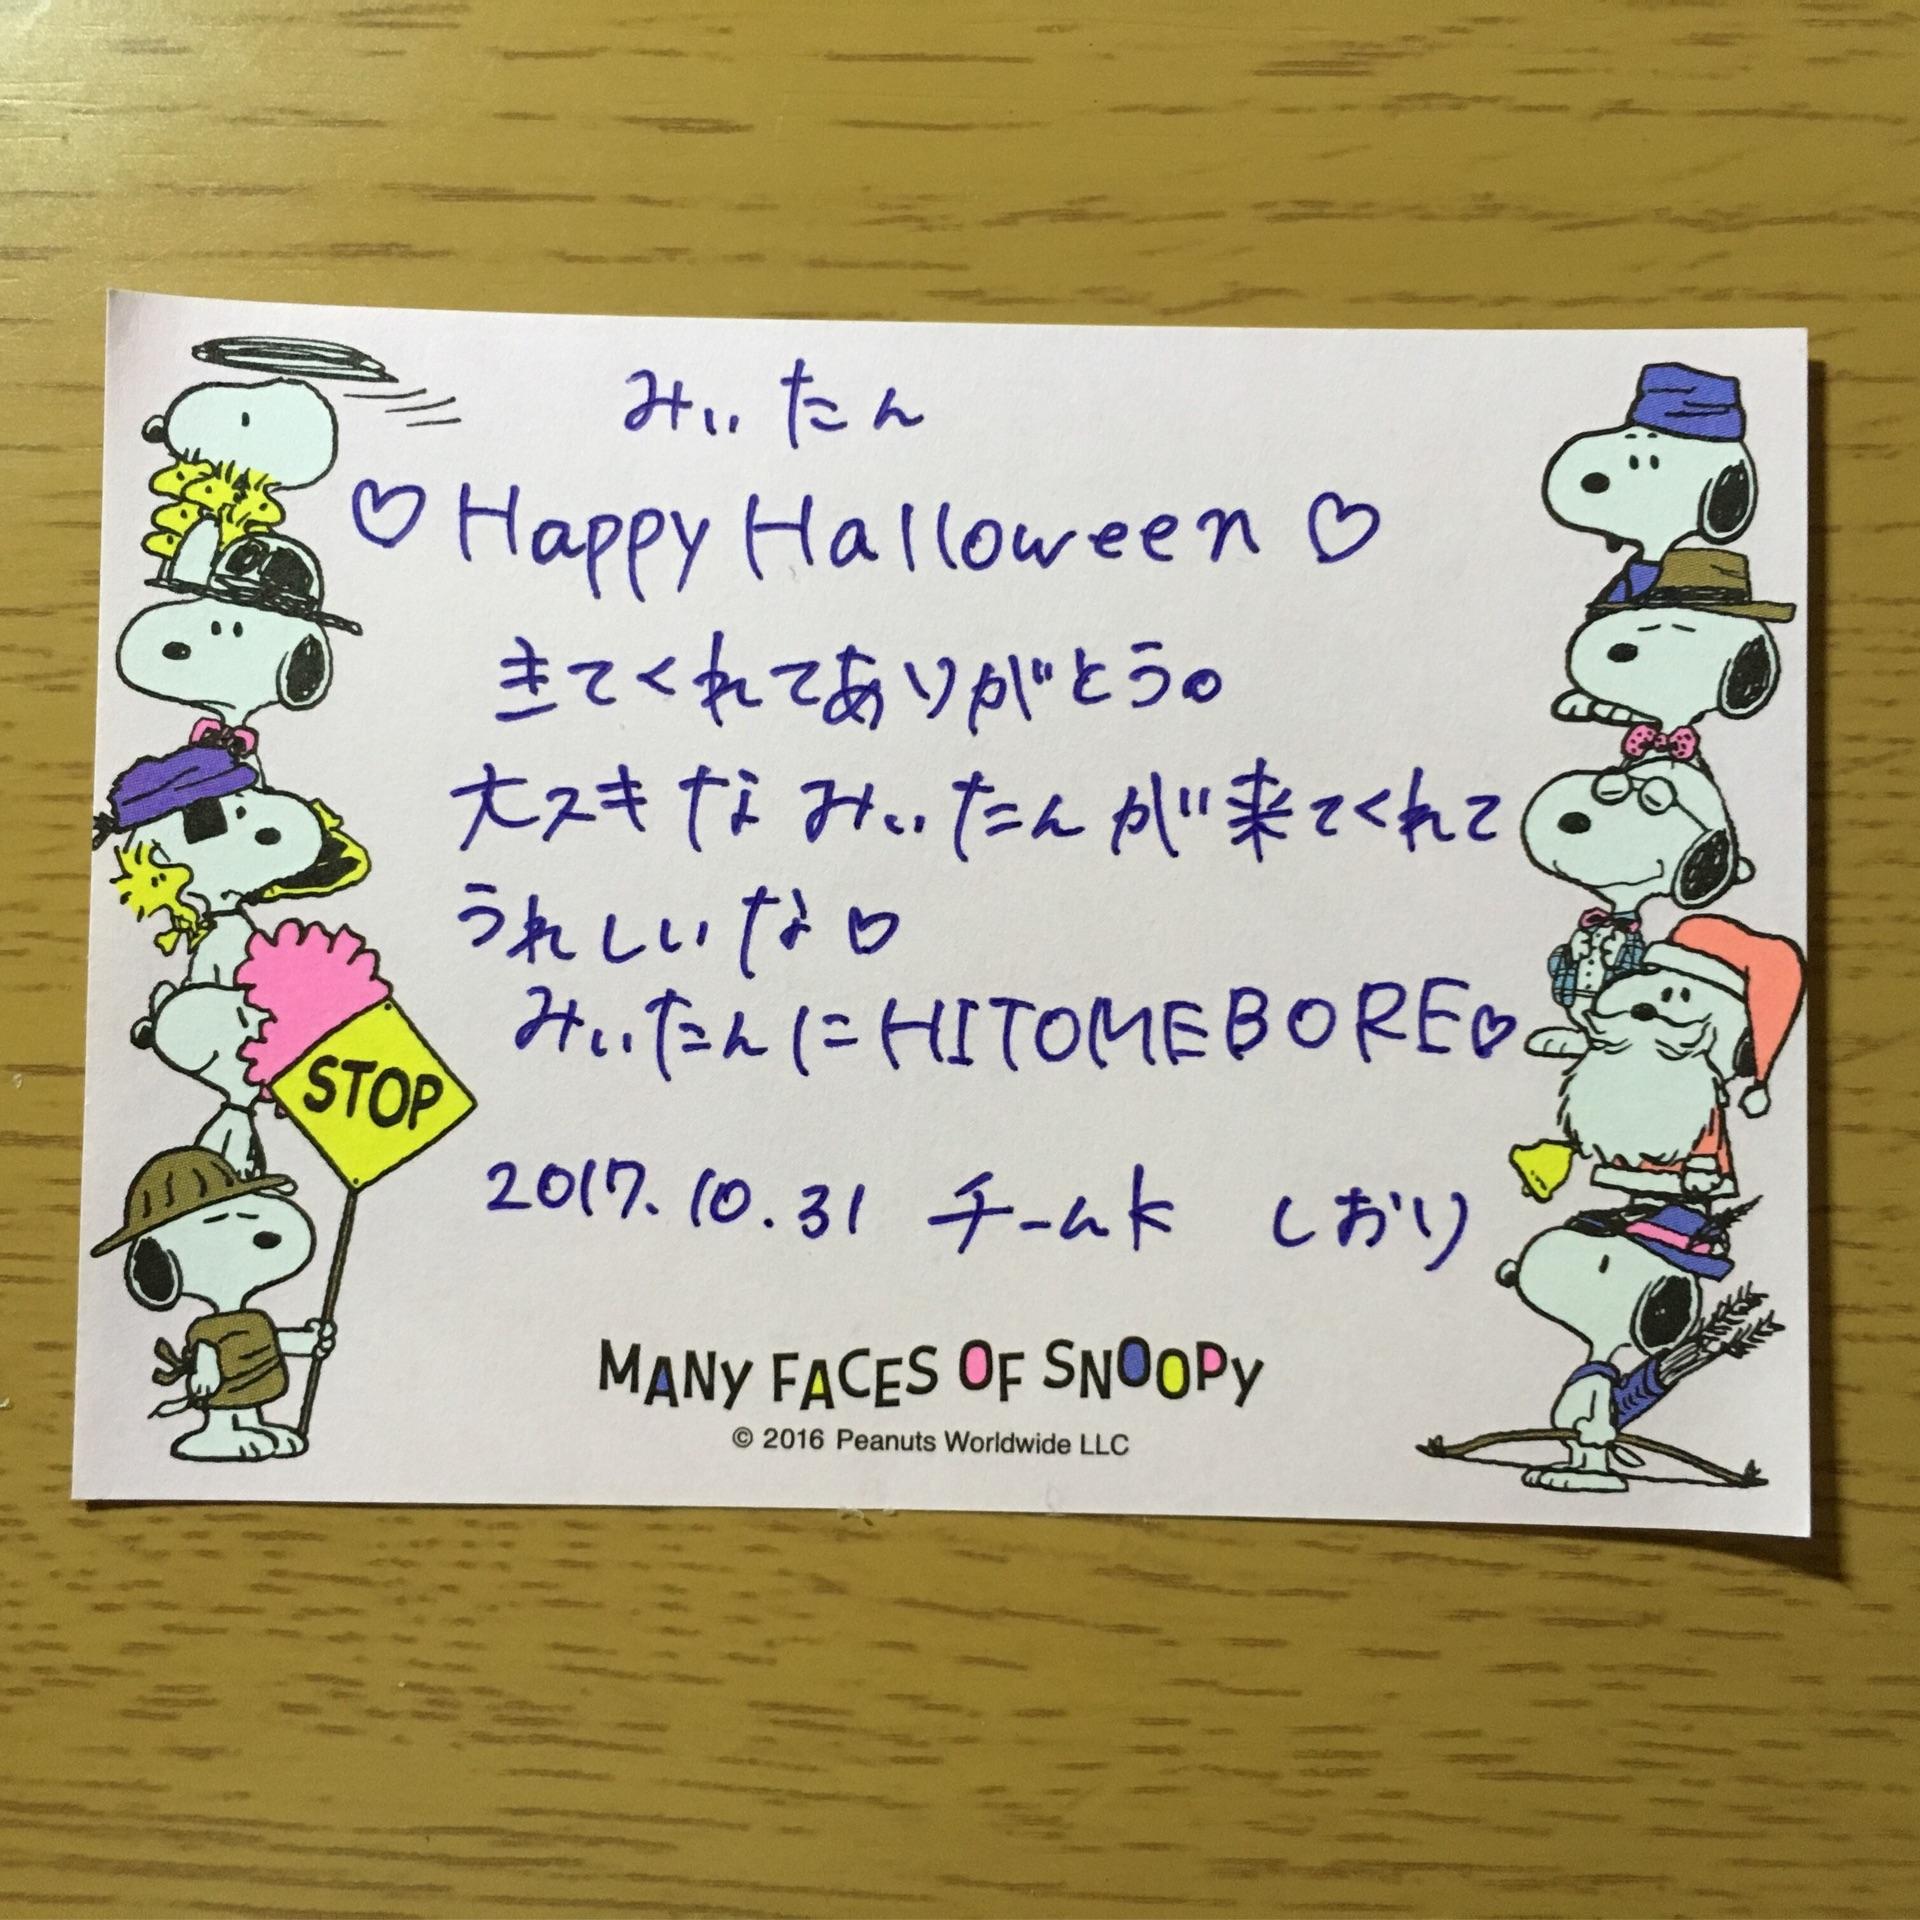 みぃたん
♡ Happy Halloween ♡
きてくれてありがとう。
大スキなみぃたんが来てくれて
うれしいな♡
みぃたんにHITOMEBORE♡
2017.10.31 チームK しおり
STOP
MANY FACES OF SNOOPY
© 2016 Peanuts Worldwide LLC